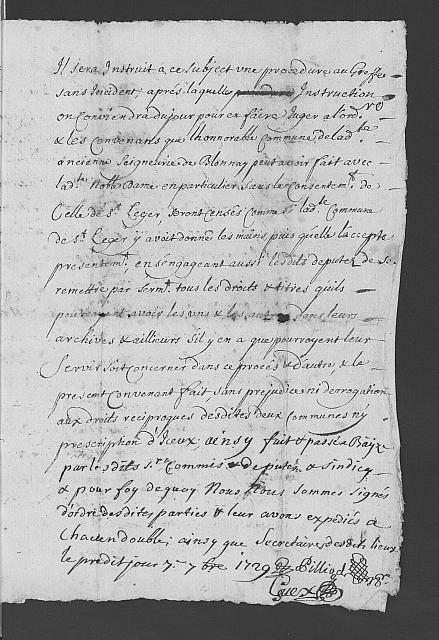 Il sera Instruit a ce Subject vne procedure au Greffe
sans Incident, apres laquelle Instruction
on Conviendra du jour pour en faire Juger a lord.
& les Convenants que l'honnorable Commune de lad.te
ancienne Seigneurie de Blonnay peut avoir fait avec
lad.te Noble Dame en particulier sans le Consentem.t de
Celle de S.t Leger, seront censés comme si lad.te Commune
de S.t Leger ÿ avoit donné les mains, puis qu'elle l'accepte
presentem.t, en s'engageant aussi lesdits deputez de se
remettre par Serm.t tous les droits & titres quils
pourroyent avoir les vns & les autres dans leurs
archives & ailleurs s'il y en a que pourroyent leur
servir soit concerner dans ce procés & d'autre, & la
present Convenant fait sans prejudice ni derogation
aux droits reciproques desdites deux Communes ny
prescription d'Iceux, ainsy fait & passé a
par lesdits S.rs Commis deputez & Sindicq
& pour foy de quoy Nous Nous sommes signés
d'ordre desdites parties & leur avons expediés a
Chacun double; ainsy que Secretaires desdits lieux
le predit jour 7.e 7bre 1729 Pilliod